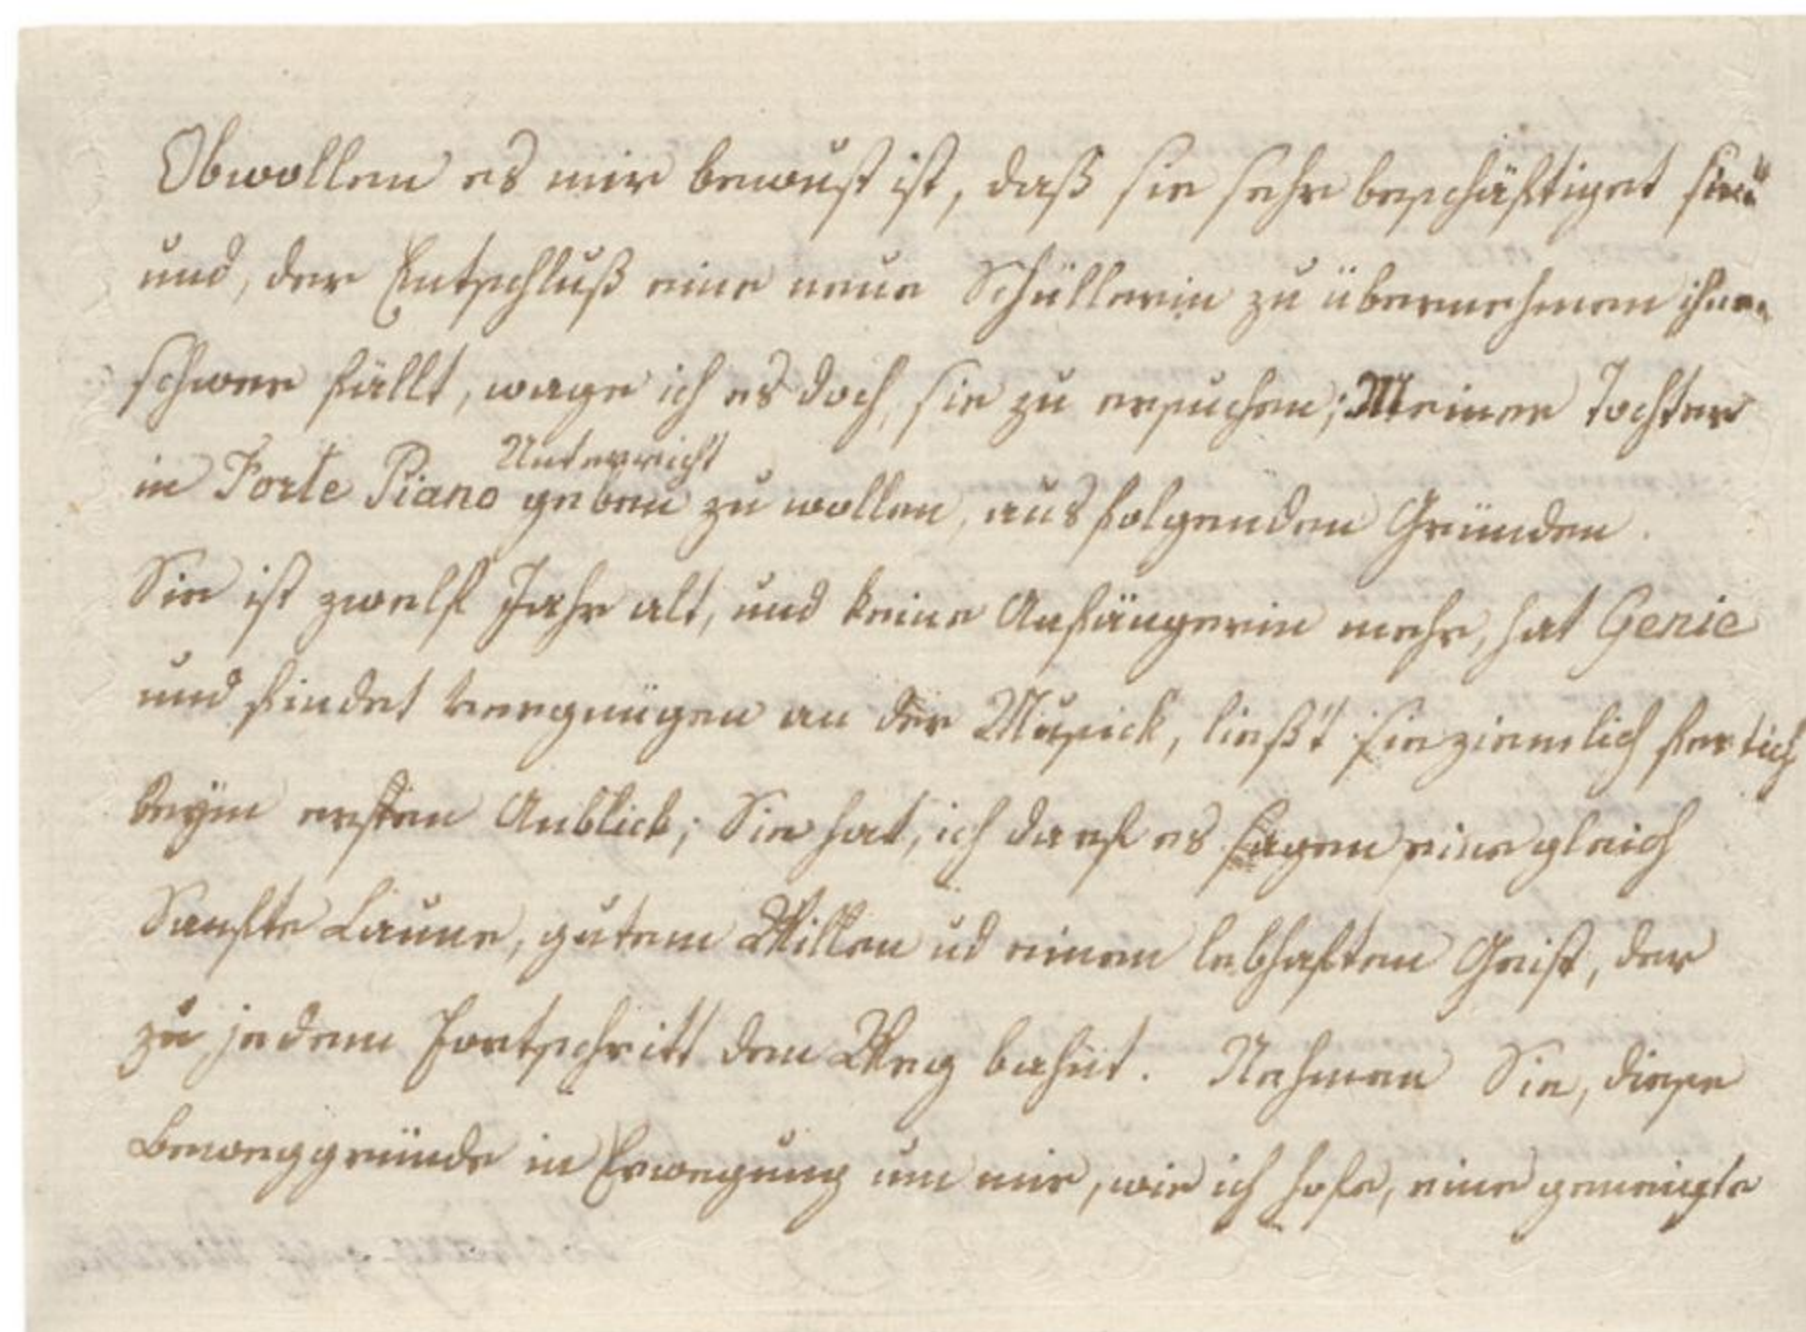 Obwollen es mir bewust ist, daß sie sehr beschäftiget sind
und, der Entschluß eine neue Schüllerin zu übernehmen ihnen
schwer fällt, wage ich es doch, sie zu ersuchen; Meiner Tochter
Unterricht
in Forte Piano geben zu wollen, aus folgenden Gründen.
Sie ist zwelf Jahr alt, und keine Anfängerin mehr, hat Genie
und findet vergnügen an der Musick, ließ't sie ziemlich fertich
beÿm ersten Anblick; Sie hat, ich darf es sagen, eine gleich
Sanfte Laune, gutem Willen ud einem lebhaften Geist, der
zu jedem Fortschritt dem Weg bahnt. Nehmen Sie, diese
Beweggründe in Erwegung um mir, wie ich hofe, eine geneigte